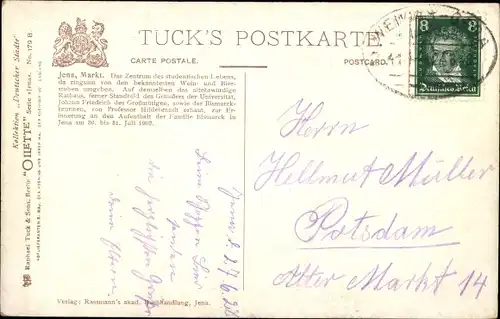 TUCK'S POSTKARTE
CARTE POSTALE.
POSTCARD.
Kollektion „Deutscher Städte"
"OILETTE" Serie »Jena«. No. 179 B.
Raphael Tuck & Sons, Berlin
Jena, Markt. Das Zentrum des studentischen Lebens,
da ringsum von den bekanntesten Wein- und Bier-
stuben umgeben. Auf demselben das altehrwürdige
Rathaus, ferner Standbild des Gründers der Universität,
Johann Friedrich des Großmütigen, sowie der Bismarck-
brunnen, von Professor Hildebrandt erbaut, zur Er-
innerung an den Aufenthalt der Familie Bismarck in
Jena am 30. bis 31. Juli 1892.
8 8
Herrn
Hellmut Müller
Potsdam
Alter Markt 14
Jena d. 27/6. 28
senden
die herzlichsten Grüße
Deine Eltern.
Verlag: Rassmann's akad. Buchhandlung, Jena.